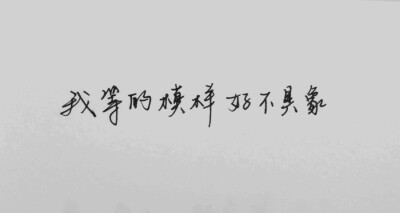 我等的模样好不具象